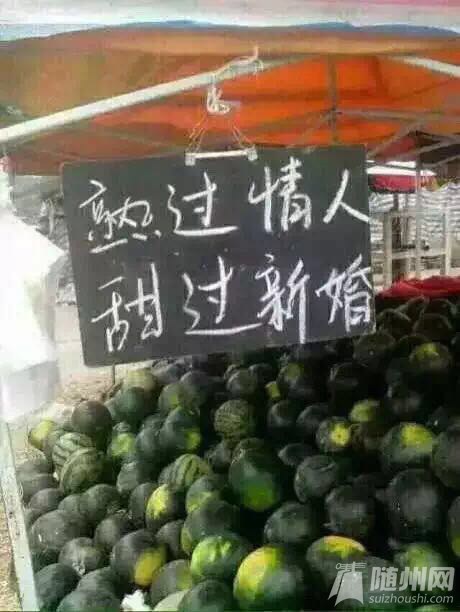 熟过情人
甜过新婚
随州网
suizhoushi.com